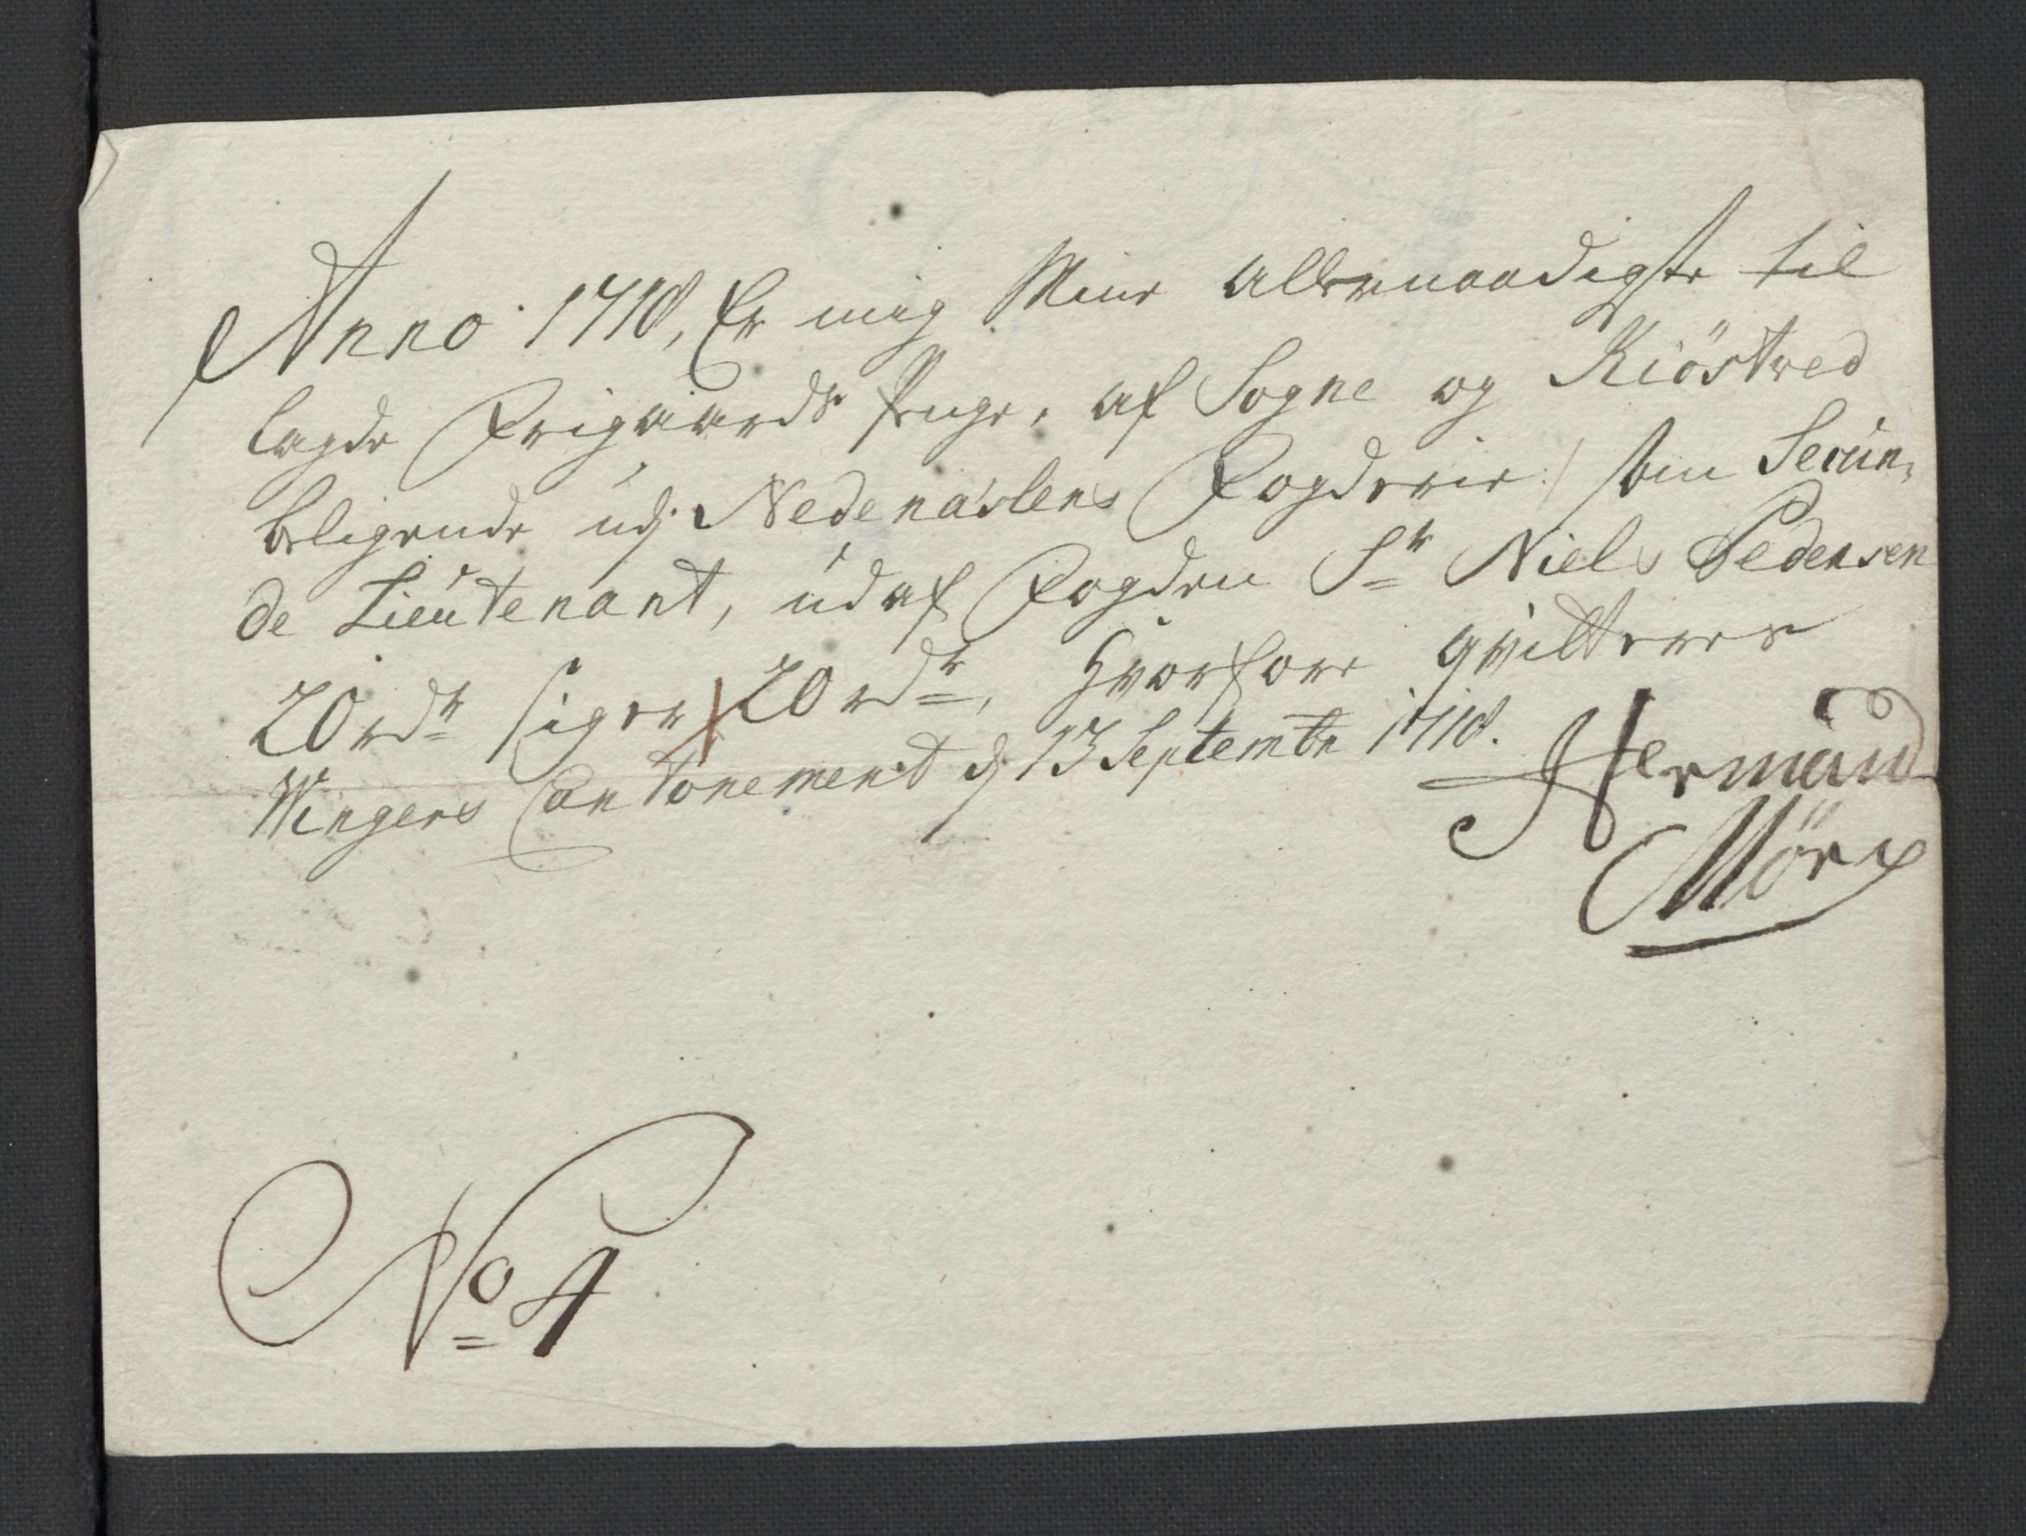 Anno 1718, Er mig Mine allernaadigste til
lagde Frigaards Penge, af Sogne og Kiöstved
beligende udj Nedenæslens Fogderie / som Secun-
de Lieutenant, udaf Fogden Sr Niels Pedersen
20 rdr siger 20 rdr, hvorfore qvitteres
Wingers Cantonement dj 13 Septembr 1718.
Hermand
Mörx
No 4